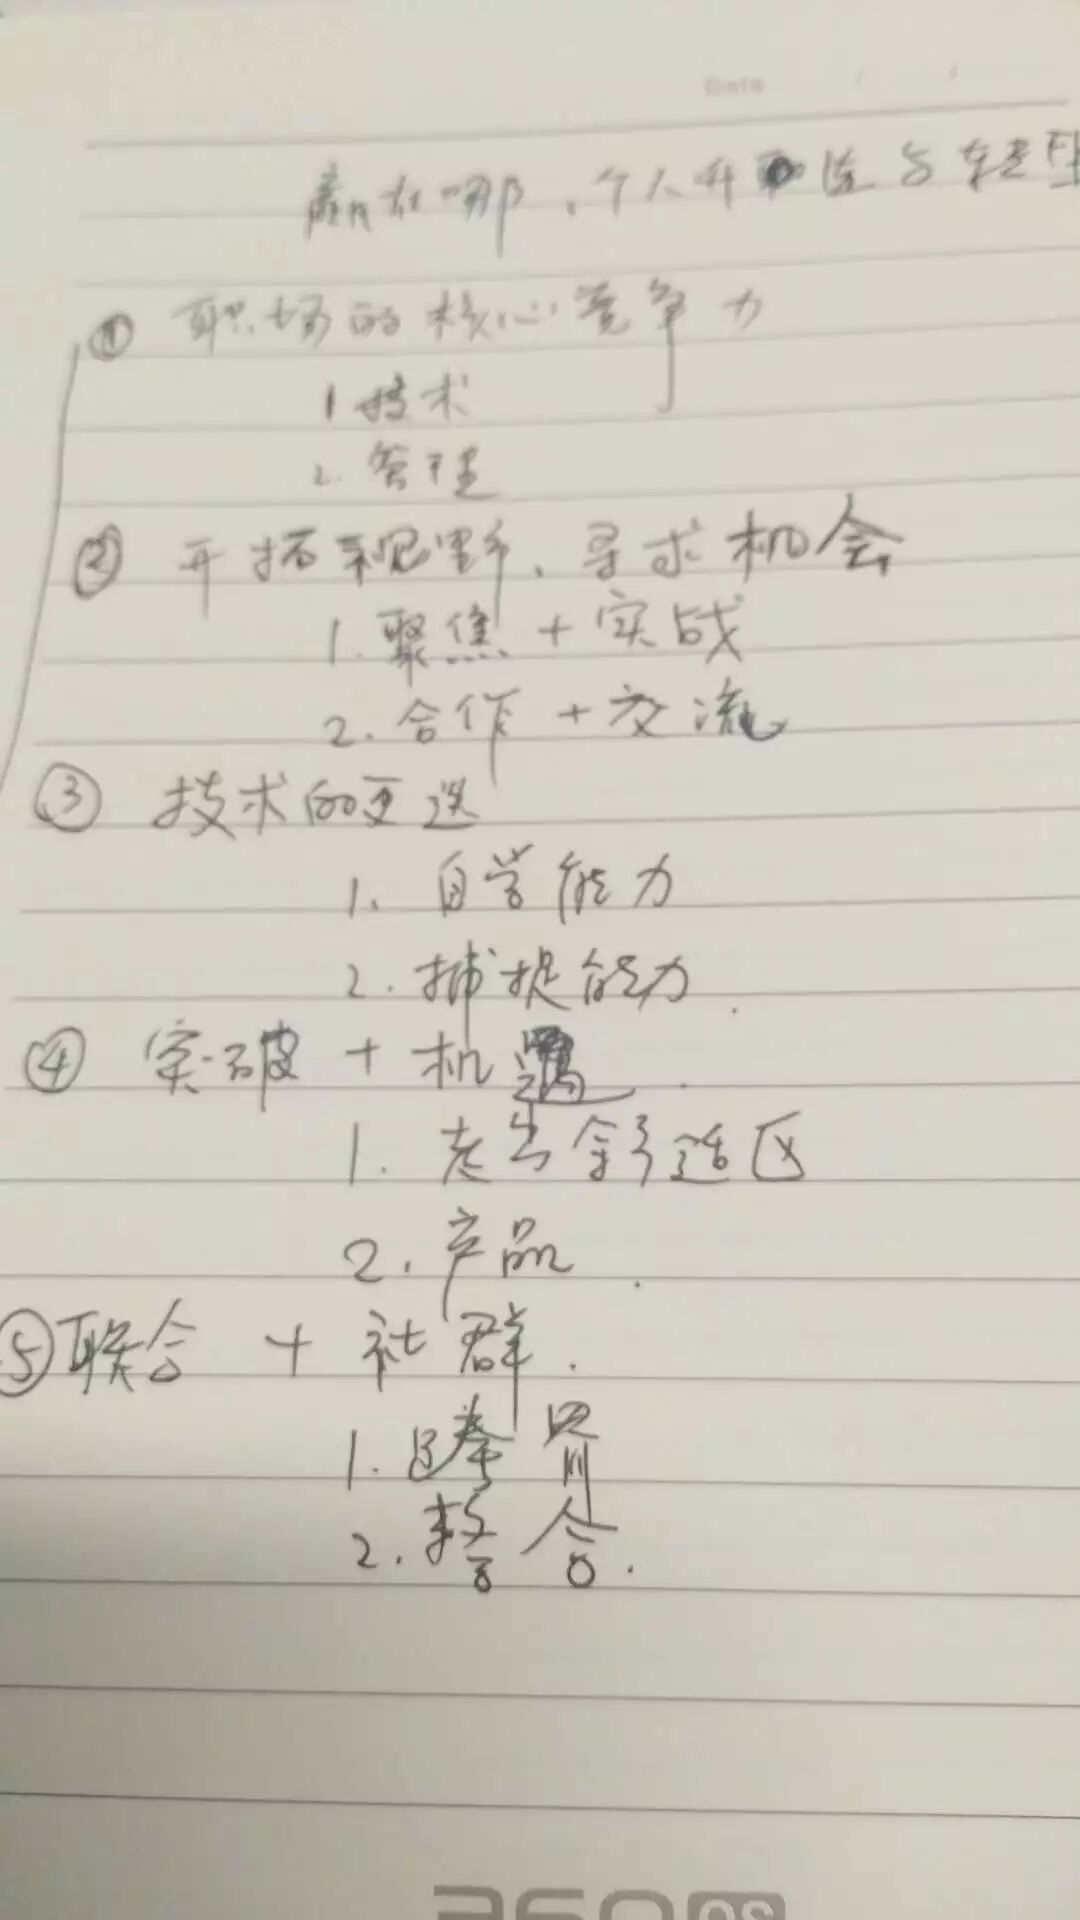 Date
赢在哪、个人升 与转型
① 职场的核心竞争力
1 技术
2. 管理
② 开拓视野、寻求机会
1. 聚焦 + 实战
2. 合作 + 交流
③ 技术的更迭
1. 自学能力
2. 捕捉能力.
④ 突破 + 机遇.
1. 走出舒适区
2. 产品.
⑤ 联合 + 社群.
1.
2. 整合.
360 OS